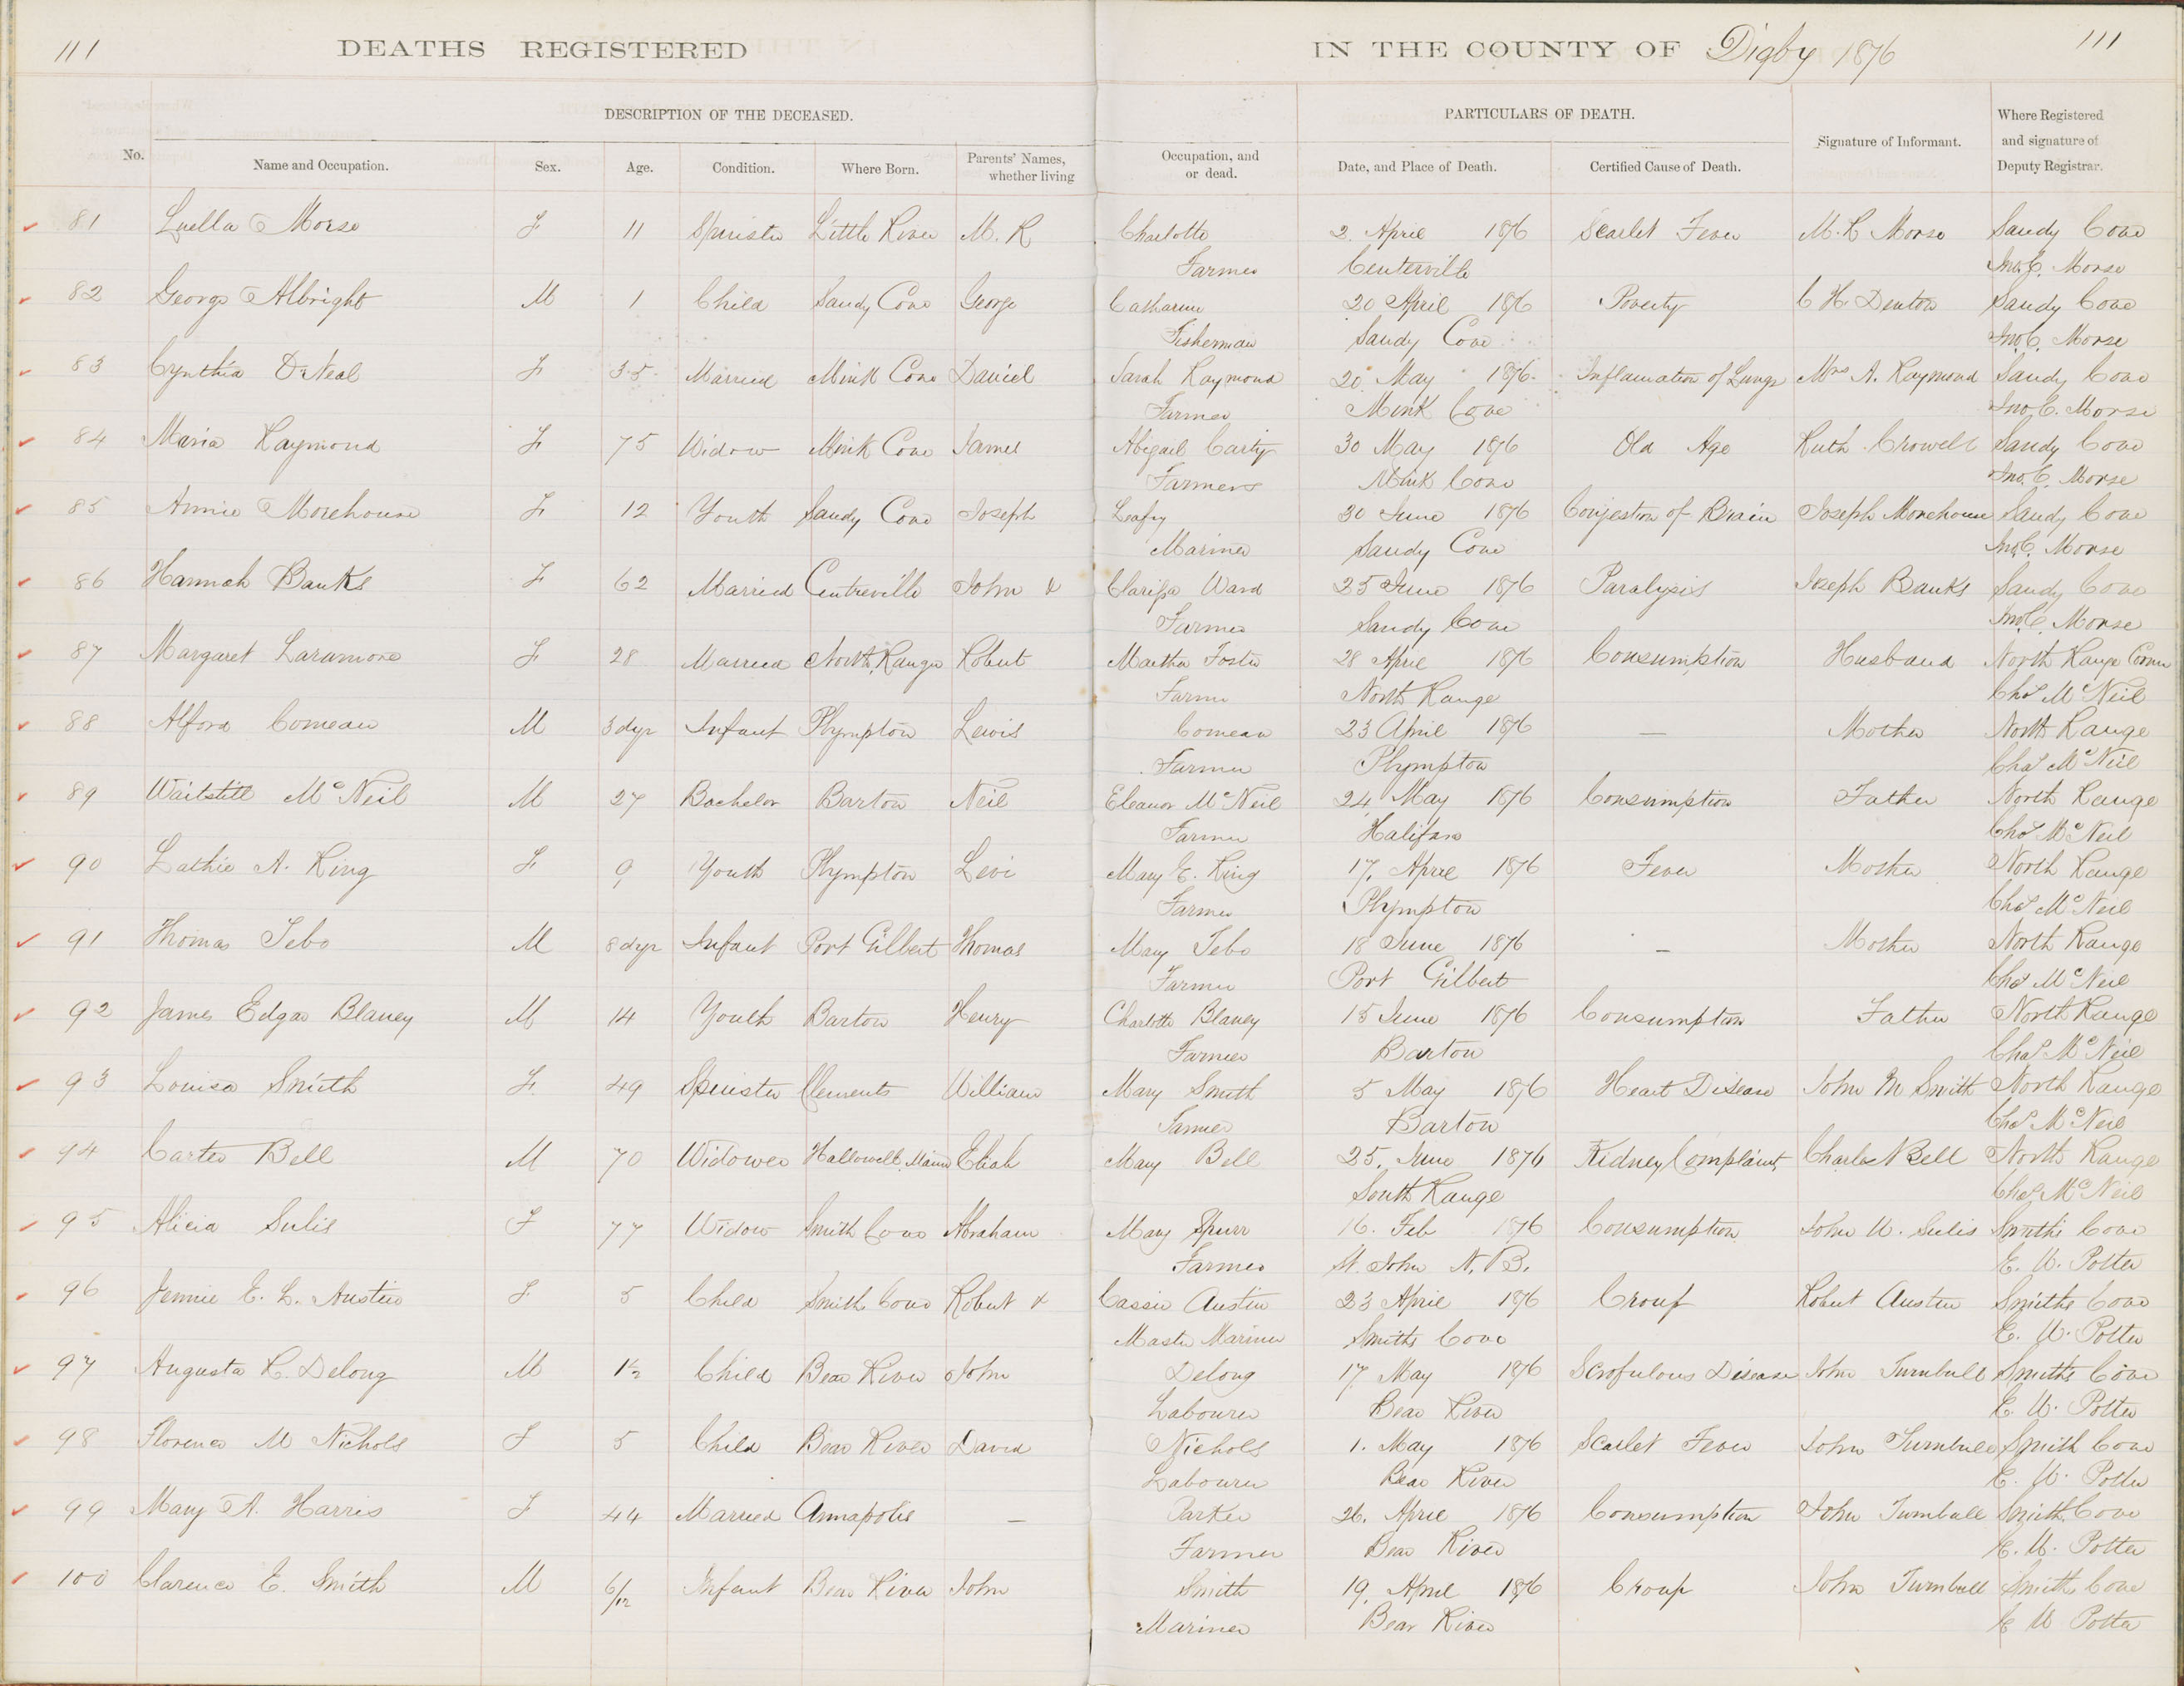 111 DEATHS REGISTERED IN THE COUNTY OF Digby 1876 111
DESCRIPTION OF THE DECEASED. PARTICULARS OF DEATH.
No. Name and Occupation. Sex. Age. Condition. Where Born. Parents' Names, whether living Occupation, and or dead. Date, and Place of Death. Certified Cause of Death. Signature of Informant. Where Registered and signature of Deputy Registrar.
81 Luella Morse F 11 Spinster Little River M. R Charlotte 2. April 1876 Scarlet Fever M. R Morse Sandy Cove
Farmer Centerville Jno. C. Morse
82 George Albright M 1 Child Sandy Cove George Catharine 20 April 1876 Poverty C H. Denton Sandy Cove
Fisherman Sandy Cove Jno. C. Morse
83 Cynthia O'Neal F 35 Married Mink Cove Daniel Sarah Raymond 20 May 1876 Inflamation of Lungs Mrs A. Raymond Sandy Cove
Farmer Mink Cove Jno. C. Morse
84 Maria Raymond F 75 Widow Mink Cove James Abigail Carty 30 May 1876 Old Age Ruth Crowell Sandy Cove
Farmers Mink Cove Jno. C. Morse
85 Annie Morehouse F 12 Youth Sandy Cove Joseph Leafy 30 June 1876 Conjestion of Brain Joseph Morehouse Sandy Cove
Mariner Sandy Cove Jno. C. Morse
86 Hannah Banks F 62 Married Centreville John & Clarissa Ward 25 June 1876 Paralysis Joseph Banks Sandy Cove
Farmer Sandy Cove Jno. C. Morse
87 Margaret Laramore F 28 Married North Range Robert Martha Foster 28 April 1876 Consumption Husband North Range Corner
Farmer North Range Chas McNeil
88 Alford Comeau M 3 dys Infant Plympton Lewis Comeau 23 April 1876 — Mother North Range
Farmer Plympton Chas McNeil
89 Waitstill McNeil M 27 Bachelor Barton Neil Eleanor McNeil 24 May 1876 Consumption Father North Range
Farmer Halifax Chas McNeil
90 Lathie A. King F 9 Youth Plympton Levi Mary E. King 17, April 1876 Fever Mother North Range
Farmer Plympton Chas McNeil
91 Thomas Tebo M 8 dys Infant Port Gilbert Thomas Mary Tebo 18 June 1876 — Mother North Range
Farmer Port Gilbert Chas McNeil
92 James Edgar Blaney M 14 Youth Barton Henry Charlotte Blaney 15 June 1876 Consumption Father North Range
Farmer Barton Chas McNeil
93 Louisa Smith F. 49 Spinster Clements William Mary Smith 5 May 1876 Heart Disease John M Smith North Range
Farmer Barton Chas McNeil
94 Carter Bell M 70 Widower Hallowell, Maine Eliah Mary Bell 25. June 1876 Kidney Complaint Charles N Bell North Range
South Range Chas. McNeil
95 Alicia Sulis F 77 Widow Smith Cove Abraham Mary Spurr 16. Feb 1876 Consumption John W. Sulis Smiths Cove
Farmer St. John N. B. E. W. Potter
96 Jennie E. L. Austin F 5 Child Smiths Cove Robert & Cassie Austin 23 April 1876 Croup Robert Austin Smiths Cove
Master Mariner Smiths Cove E. W. Potter
97 Augusta R. Delong M 1½ Child Bear River John Delong 17, May 1876 Scrofulous Disease John Turnbull Smiths Cove
Labourer Bear River E. W. Potter
98 Florence M Nichols F 5 Child Bear River David Nichols 1. May 1876 Scarlet Fever John Turnbull Smith Cove
Labourer Bear River E. W. Potter
99 Mary A. Harris F 44 Married Annapolis — Parker 26. April 1876 Consumption John Turnbull Smith Cove
Farmer Bear River E. W. Potter
100 Clarence E. Smith M 6/12 Infant Bear River John Smith 19, April 1876 Croup John Turnbull Smiths Cove
Mariner Bear River E W Potter